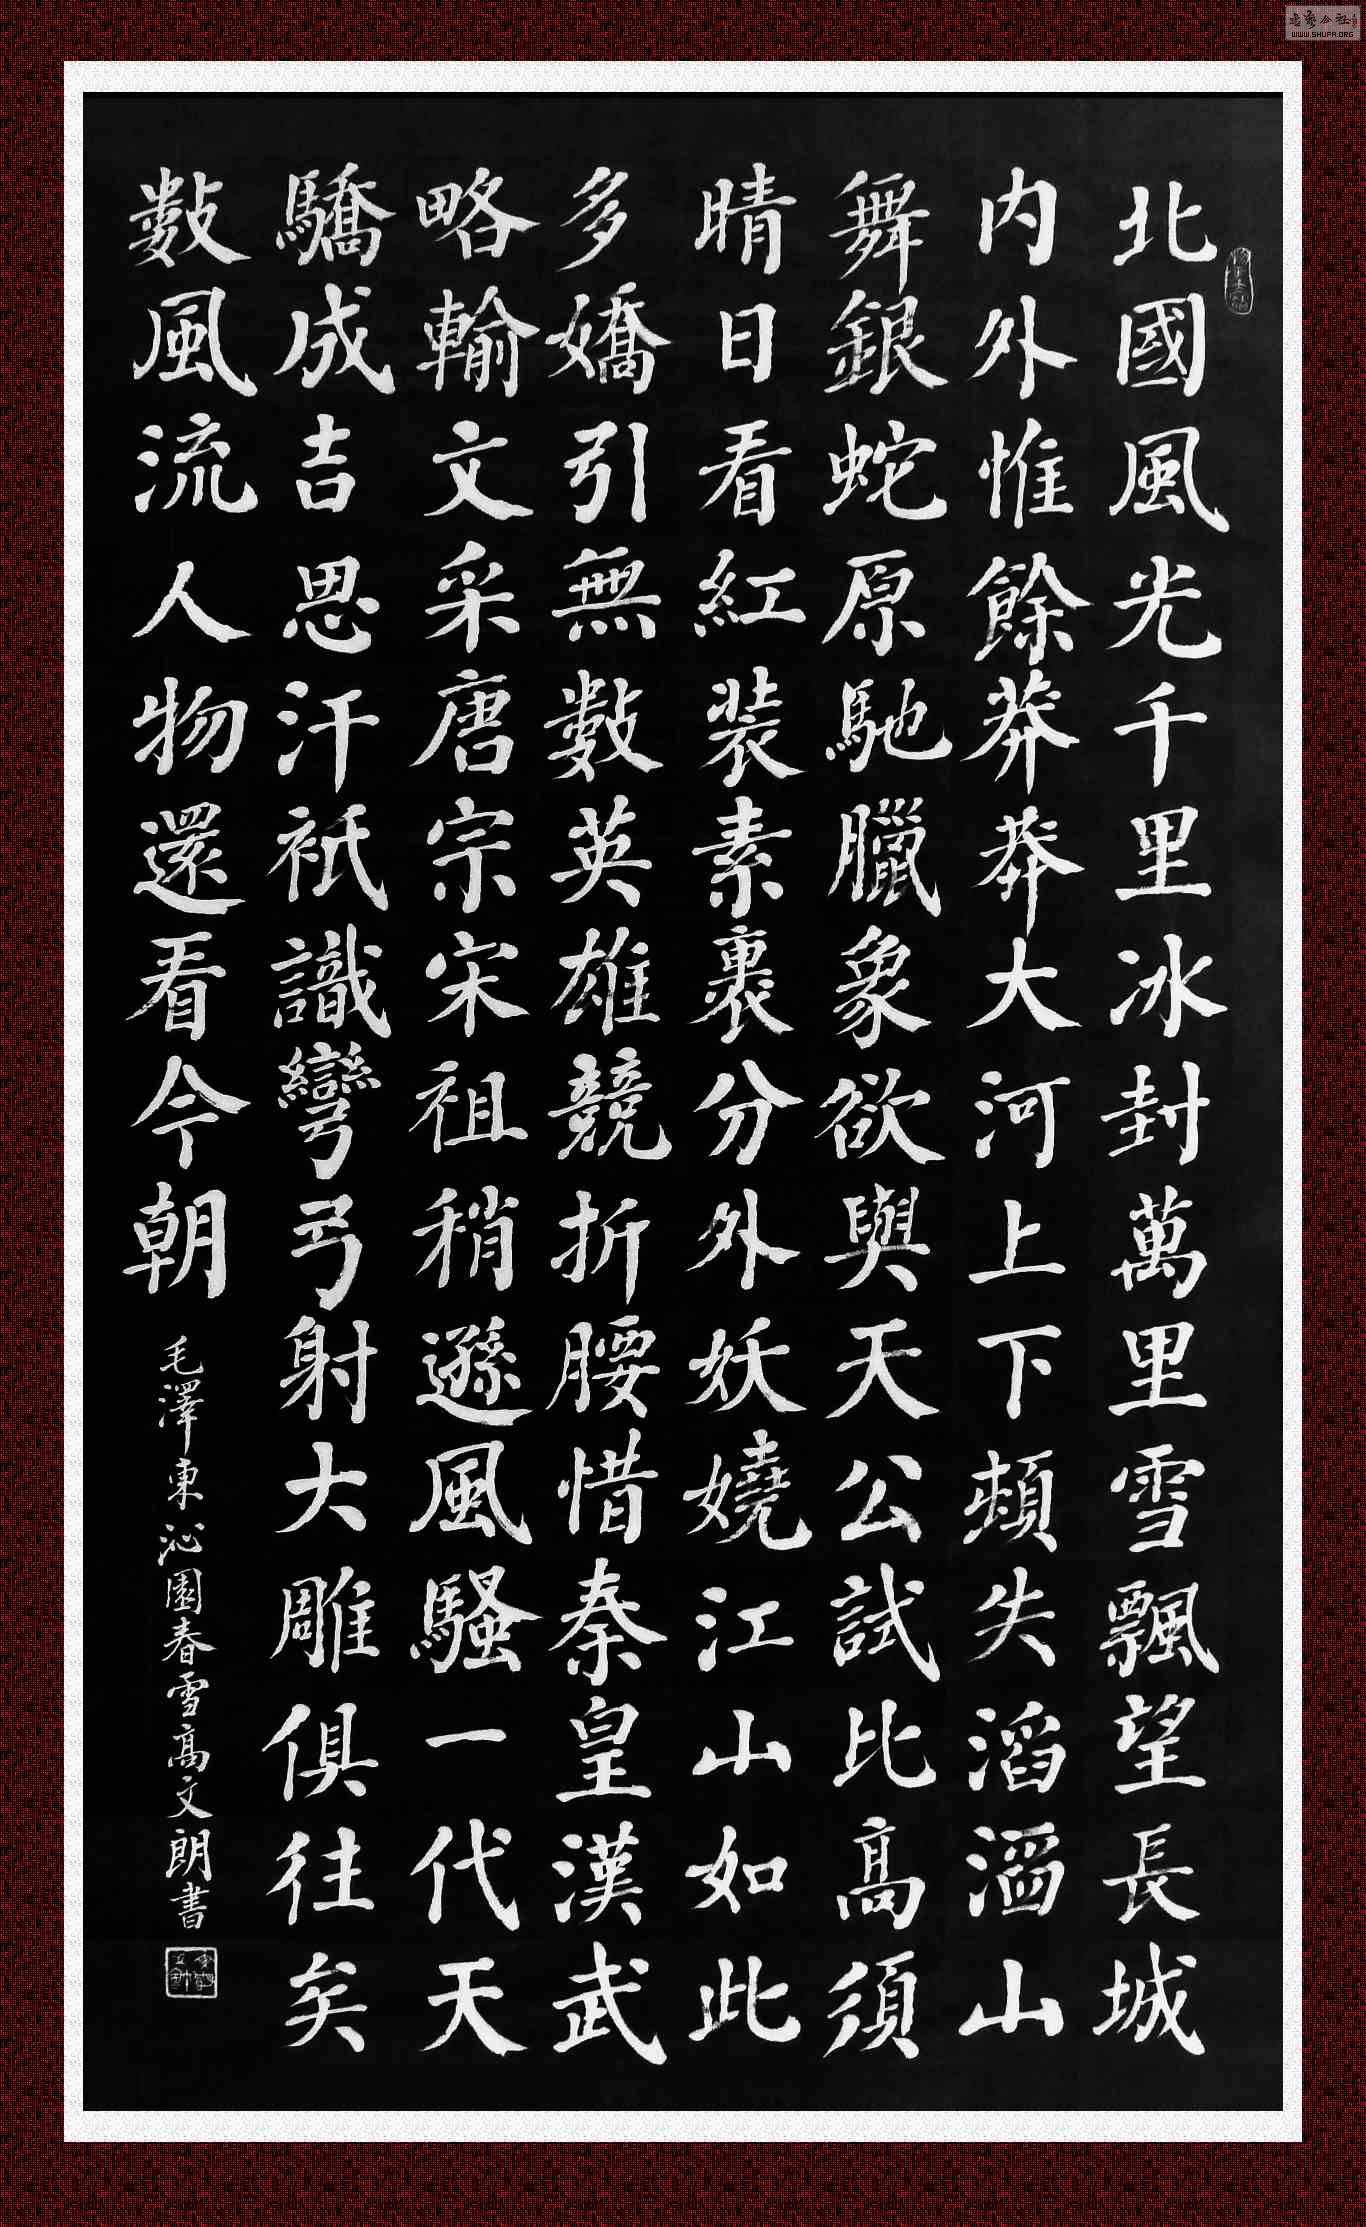 北國風光千里冰封萬里雪飄望長城
内外惟餘莽莽大河上下頓失滔滔山
舞銀蛇原馳臘象欲與天公試比高須
晴日看紅裝素裹分外妖嬈江山如此
多嬌引無數英雄競折腰惜秦皇漢武
略輸文采唐宗宋祖稍遜風騷一代天
驕成吉思汗衹識彎弓射大雕俱往矣
數風流人物還看今朝
毛澤東沁園春雪高文朗書
WWW.SHUFA.ORG